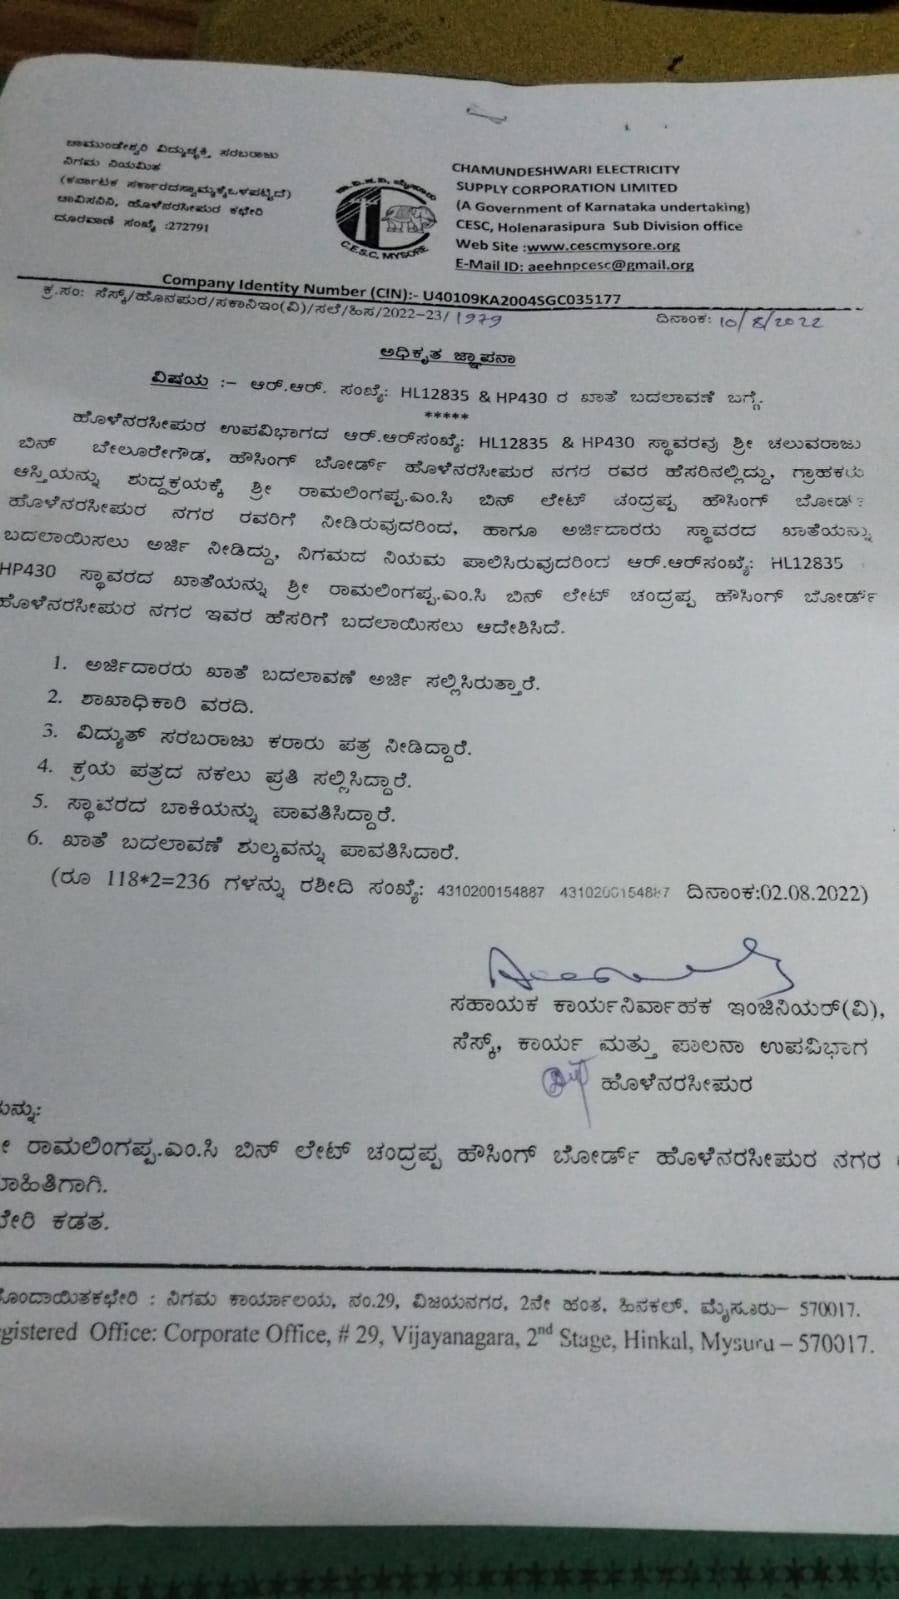 ಚಾಮುಂಡೇಶ್ವರಿ ವಿದ್ಯುಚ್ಛಕ್ತಿ ಸರಬರಾಜು
ನಿಗಮ ನಿಯಮಿತ
(ಕರ್ನಾಟಕ ಸರ್ಕಾರದಸ್ವಾಮ್ಯಕ್ಕೆಒಳಪಟ್ಟಿದೆ)
ಚಾವಿಸನಿನಿ, ಹೊಳೆನರಸೀಪುರ ಕಛೇರಿ
ದೂರವಾಣಿ ಸಂಖ್ಯೆ :272791
C.E.S.C, MYSORE
CHAMUNDESHWARI ELECTRICITY
SUPPLY CORPORATION LIMITED
(A Government of Karnataka undertaking)
CESC, Holenarasipura Sub Division office
Web Site :www.cescmysore.org
E-Mail ID: aeehnpcesc@gmail.org
Company Identity Number (CIN):- U40109KA2004SGC035177
ಕ್ರ.ಸಂ: ಸೆಸ್ಕ್/ಹೊನಪುರ/ಸಕಾನಿಇಂ(ವಿ)/ಸಲೆ/ಹಿಸ/2022-23/1979
ದಿನಾಂಕ: 10/8/2022
ಅಧಿಕೃತ ಜ್ಞಾಪನಾ
ವಿಷಯ :- ಆರ್.ಆರ್. ಸಂಖ್ಯೆ: HL12835 & HP430 ರ ಖಾತೆ ಬದಲಾವಣೆ ಬಗ್ಗೆ.
*****
ಹೊಳೆನರಸೀಪುರ ಉಪವಿಭಾಗದ ಆರ್.ಆರ್‌ಸಂಖ್ಯೆ: HL12835 & HP430 ಸ್ಥಾವರವು ಶ್ರೀ ಚಲುವರಾಜು
ಬಿನ್ ಬೇಲೂರೇಗೌಡ, ಹೌಸಿಂಗ್ ಬೋರ್ಡ್ ಹೊಳೆನರಸೀಪುರ ನಗರ ರವರ ಹೆಸರಿನಲ್ಲಿದ್ದು, ಗ್ರಾಹಕರು
ಆಸ್ತಿಯನ್ನು ಶುದ್ದಕ್ರಯಕ್ಕೆ ಶ್ರೀ ರಾಮಲಿಂಗಪ್ಪ.ಎಂ.ಸಿ ಬಿನ್ ಲೇಟ್ ಚಂದ್ರಪ್ಪ ಹೌಸಿಂಗ್ ಬೋರ್ಡ್
ಹೊಳೆನರಸೀಪುರ ನಗರ ರವರಿಗೆ ನೀಡಿರುವುದರಿಂದ, ಹಾಗೂ ಅರ್ಜಿದಾರರು ಸ್ಥಾವರದ ಖಾತೆಯನ್ನು
ಬದಲಾಯಿಸಲು ಅರ್ಜಿ ನೀಡಿದ್ದು, ನಿಗಮದ ನಿಯಮ ಪಾಲಿಸಿರುವುದರಿಂದ ಆರ್.ಆರ್‌ಸಂಖ್ಯೆ: HL12835
HP430 ಸ್ಥಾವರದ ಖಾತೆಯನ್ನು ಶ್ರೀ ರಾಮಲಿಂಗಪ್ಪ.ಎಂ.ಸಿ ಬಿನ್ ಲೇಟ್ ಚಂದ್ರಪ್ಪ ಹೌಸಿಂಗ್ ಬೋರ್ಡ್
ಹೊಳೆನರಸೀಪುರ ನಗರ ಇವರ ಹೆಸರಿಗೆ ಬದಲಾಯಿಸಲು ಆದೇಶಿಸಿದೆ.
1. ಅರ್ಜಿದಾರರು ಖಾತೆ ಬದಲಾವಣೆ ಅರ್ಜಿ ಸಲ್ಲಿಸಿರುತ್ತಾರೆ.
2. ಶಾಖಾಧಿಕಾರಿ ವರದಿ.
3. ವಿದ್ಯುತ್ ಸರಬರಾಜು ಕರಾರು ಪತ್ರ ನೀಡಿದ್ದಾರೆ.
4. ಕ್ರಯ ಪತ್ರದ ನಕಲು ಪ್ರತಿ ಸಲ್ಲಿಸಿದ್ದಾರೆ.
5. ಸ್ಥಾವರದ ಬಾಕಿಯನ್ನು ಪಾವತಿಸಿದ್ದಾರೆ.
6. ಖಾತೆ ಬದಲಾವಣೆ ಶುಲ್ಕವನ್ನು ಪಾವತಿಸಿದಾರೆ.
(ರೂ 118*2=236 ಗಳನ್ನು ರಶೀದಿ ಸಂಖ್ಯೆ: 4310200154887 4310200154887 ದಿನಾಂಕ:02.08.2022)
ಸಹಾಯಕ ಕಾರ್ಯನಿರ್ವಾಹಕ ಇಂಜಿನಿಯರ್(ವಿ),
ಸೆಸ್ಕ್, ಕಾರ್ಯ ಮತ್ತು ಪಾಲನಾ ಉಪವಿಭಾಗ
ಹೊಳೆನರಸೀಪುರ
ರಾಮಲಿಂಗಪ್ಪ.ಎಂ.ಸಿ ಬಿನ್ ಲೇಟ್ ಚಂದ್ರಪ್ಪ ಹೌಸಿಂಗ್ ಬೋರ್ಡ್ ಹೊಳೆನರಸೀಪುರ ನಗರ
ಾಹಿತಿಗಾಗಿ.
ಛೇರಿ ಕಡತ.
ೊಂದಾಯಿತಕಛೇರಿ : ನಿಗಮ ಕಾರ್ಯಾಲಯ, ನಂ.29, ವಿಜಯನಗರ, 2ನೇ ಹಂತ, ಹಿನಕಲ್, ಮೈಸೂರು- 570017.
egistered Office: Corporate Office, # 29, Vijayanagara, 2nd Stage, Hinkal, Mysuru – 570017.